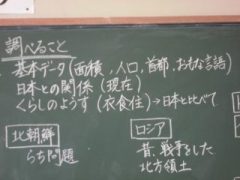 調べること
・基本データ(面積,人口,首都,おもな言語)
日本との関係(現在)
くらしのようす(衣食住)→日本と比べて
北朝鮮
らち問題
ロシア
昔、戦争をした
北方領土